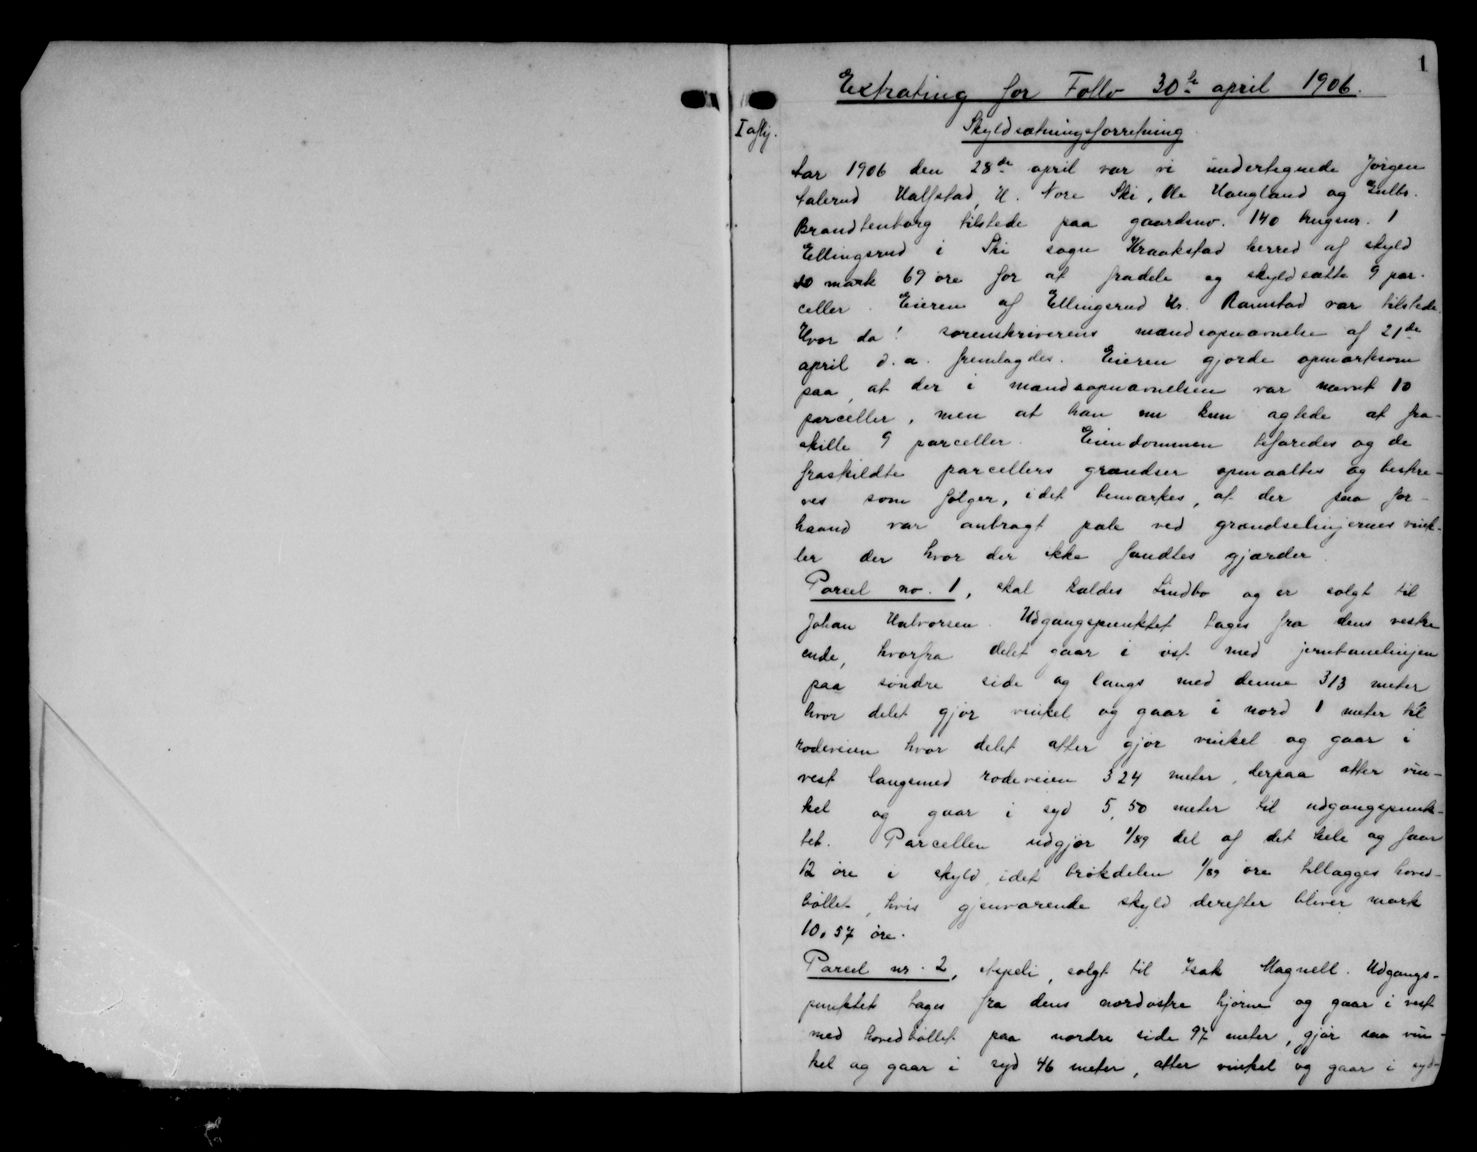 1
Extrating for Follo 30te april 1906.
I afskj.
Skyldsætningsforretning
Aar 1906 den 28de april var vi undertegnede Jørgen
Aalerud Halfstad, H. Nore Ski, Ole Haugland og Gulbr.
Brandtenborg tilstede paa gaardsno. 140 brugsnr. 1
Ellingsrud i Ski sogn Kraakstad herred af skyld
10 mark 69 øre for at fradele og skyldsætte 9 par-
celler. Eieren af Ellingsrud Hr. Ramstad var tilstede.
Hvor da! sorenskriverens mandsopnævnelse af 21de
april d. a. fremlagdes. Eieren gjorde opmærksom
paa, at der i mandsopnævnelsen var nævnt 10
parceller, men at han nu kun agtede at fra-
skille 9 parceller. Eiendommen befaredes og de
fraskildte parcellers grændser opmaaltes og beskre-
ves som følger, idet bemærkes, at der paa for-
haand var anbragt pæle ved grændselinjernes vink-
ler der hvor der ikke fandtes gjærder.
Parcel no. 1, skal kaldes Lindbo og er solgt til
Johan Halvorsen. Udgangspunktet tages fra dens vestre
ende, hvorfra delet gaar i øst med jernbanelinjen
paa søndre side og langs med denne 313 meter
hvor delet gjør vinkel og gaar i nord 1 meter til
rodeveien hvor delet atter gjør vinkel og gaar i
vest langsmed rodeveien 324 meter, derpaa atter vin-
kel og gaar i syd 5,50 meter til udgangspunk-
tet. Parcellen udgjør 1/89 del af det hele og faar
12 øre i skyld, idet brøkdelen 1/89 øre tillægges hoved-
bøllet, hvis gjenværende skyld derefter bliver mark
10,57 øre.
Parcel nr. 2, Aspeli, solgt til Isak Magnell. Udgangs-
punktet tages fra dens nordøstre hjørne og gaar i vest
med hovedbøllet paa nordre side 97 meter, gjør saa vin-
kel og gaar i syd 46 meter, atter vinkel og gaar i syd-